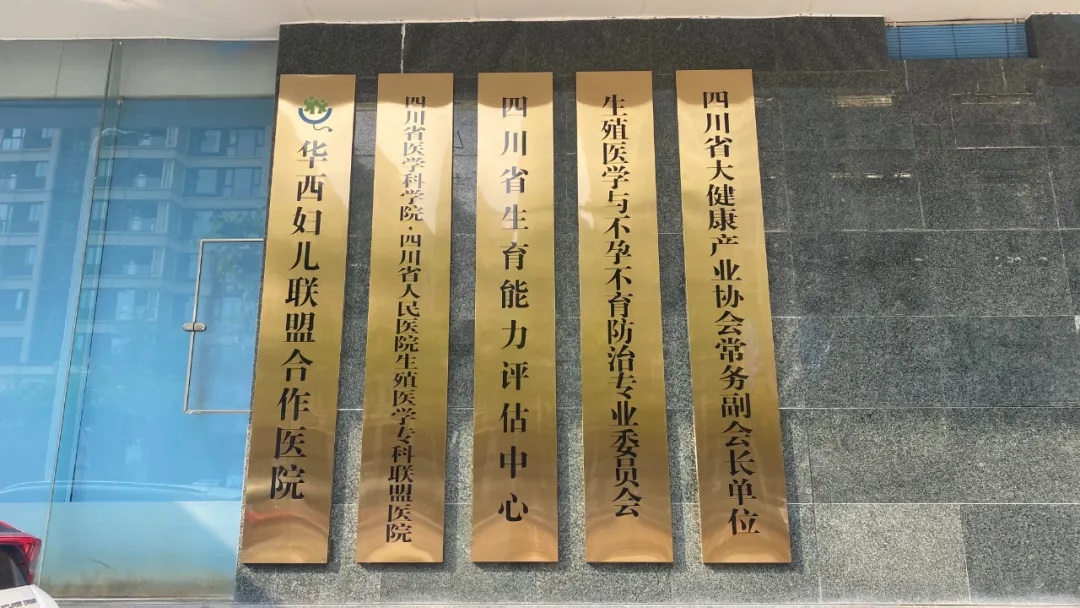 华西妇儿联盟合作医院
四川省医学科学院·四川省人民医院生殖医学专科联盟医院
四川省生育能力评估中心
生殖医学与不孕不育防治专业委员会
四川省大健康产业协会常务副会长单位